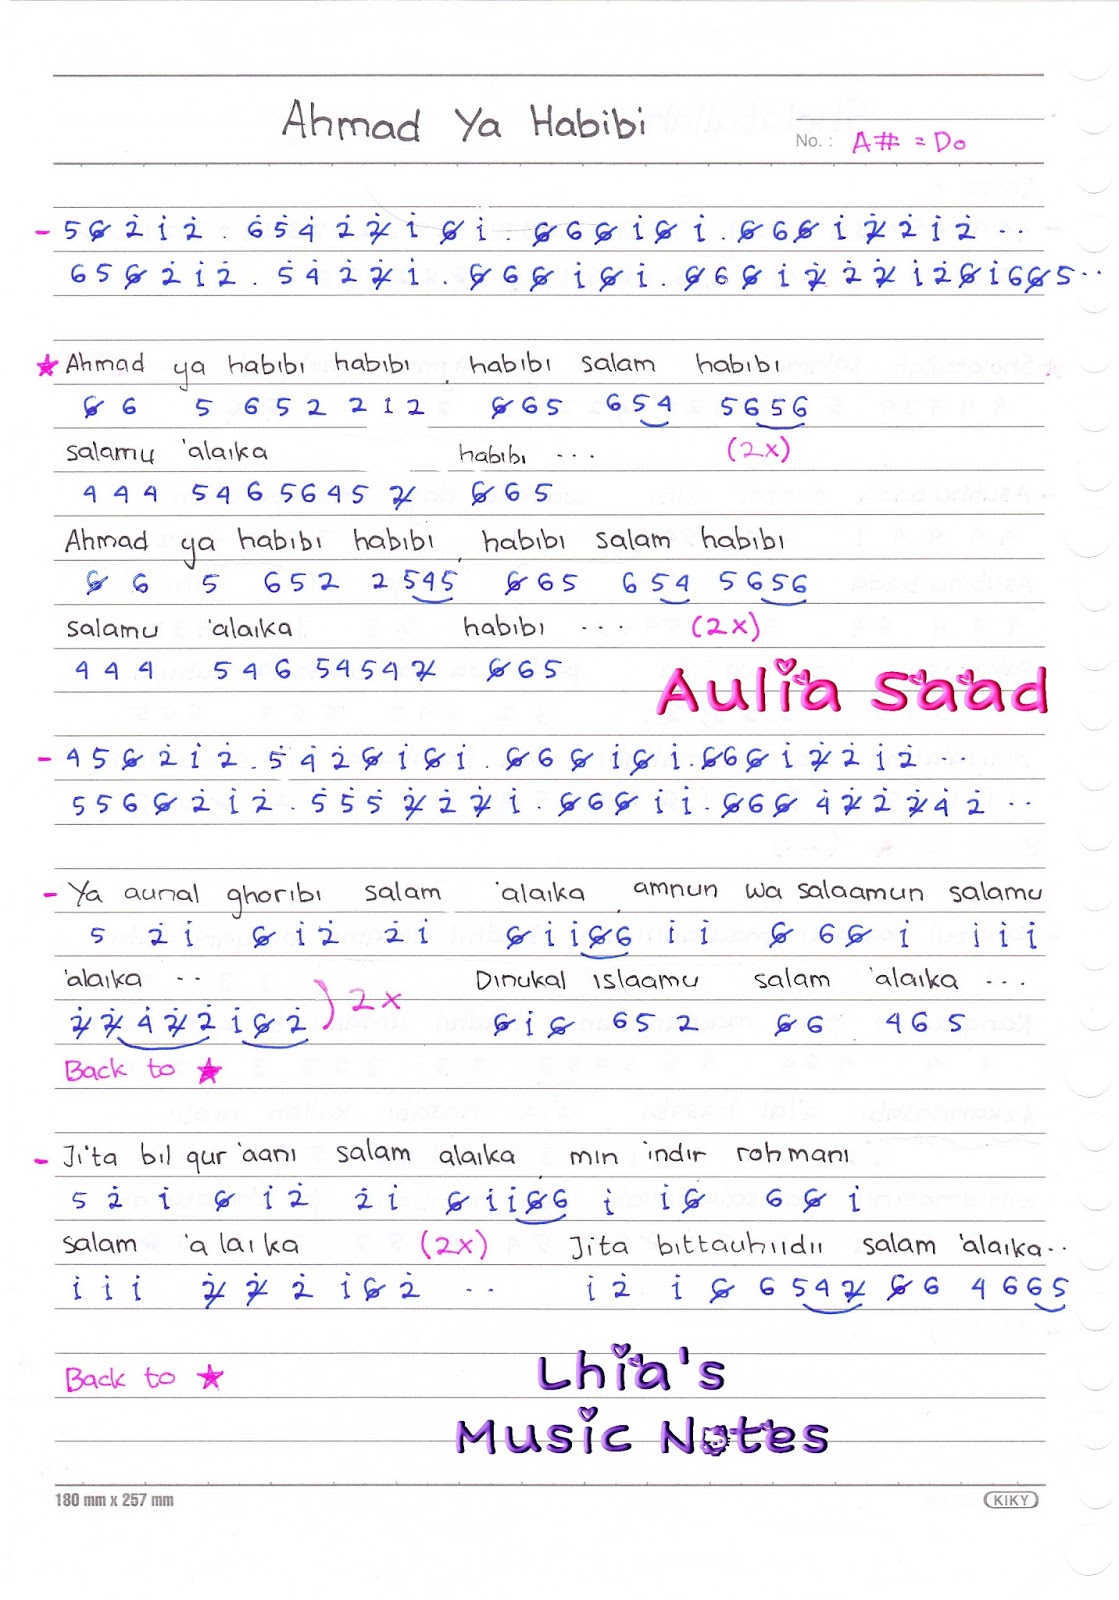 Ahmad Ya Habibi
No. : A# = Do
- 5 6̸ 2̇ i 2̇ . 6̇ 5̇ 4̇ 2̇ 2̸̇ i 6̸ i . 6̸ 6 6̸ i 6̸ i . 6̸ 6 6̸ i 2̸̇ 2̇ i 2̇ ..
6 5 6̸ 2̇ i 2̇ . 5̇ 4̇ 2̇ 2̸̇ i . 6̸ 6 6̸ i 6̸ i . 6̸ 6 6̸ i 2̸̇ 2̇ 2̸̇ i 2̇ 6̸ i 6 6̸ 5 ..
★ Ahmad ya habibi habibi , habibi salam habibi
6̸ 6 5 6 5 2 2 1 2 6̸ 6 5 6 5 4 5 6 5 6
salamu 'alaika habibi ... (2x)
4 4 4 5 4 6 5 6 4 5 2̸ 6̸ 6 5
Ahmad ya habibi habibi , habibi salam habibi
6̸ 6 5 6 5 2 2 5 4 5 6̸ 6 5 6 5 4 5 6 5 6
salamu 'alaika habibi ... (2x)
4 4 4 5 4 6 5 4 5 4 2̸ 6̸ 6 5
Aulia Saad
- 4 5 6̸ 2̇ i 2̇ . 5̇ 4̇ 2̇ 6̸ i 6̸ i . 6̸ 6 6̸ i 6̸ i . 6̸ 6 6̸ i 2̸̇ 2̇ i 2̇ ...
5 5 6 6̸ 2̇ i 2̇ . 5̇ 5̇ 5̇ 2̸̇ 2̇ 2̸̇ i . 6̸ 6 6̸ i i . 6̸ 6 6̸ 4̇ 2̸̇ 2̇ 2̸̇ 4̇ 2̇ ..
- Ya aunal ghoribi salam 'alaika , amnun wa salaamun salamu
5 2̇ i 6̸ i 2̇ 2̇ i 6̸ i i 6̸ 6 i i 6̸ 6 6̸ i i i i
'alaika .. ) 2x Dinukal islaamu salam 'alaika ...
2̸̇ 2̸̇ 4̇ 2̸̇ 2̇ i 6̸ 2̇ 6̸ i 6̸ 6 5 2 6̸ 6 4 6 5
Back to ★
- Ji'ta bil qur'aani salam alaika , min 'indir rohmani
5 2̇ i 6̸ i 2̇ 2̇ i 6̸ i i 6̸ 6 i i 6̸ 6 6̸ i
salam 'alaika (2x) Jita bittauhiidii salam 'alaika..
i i i 2̸̇ 2̸̇ 2̇ i 6̸ 2̇ .. i 2̇ i 6̸ 6 5 4 2̸ 6̸ 6 4 6 6 5
Back to ★
Lhia's
Music Notes
180 mm x 257 mm
KIKY